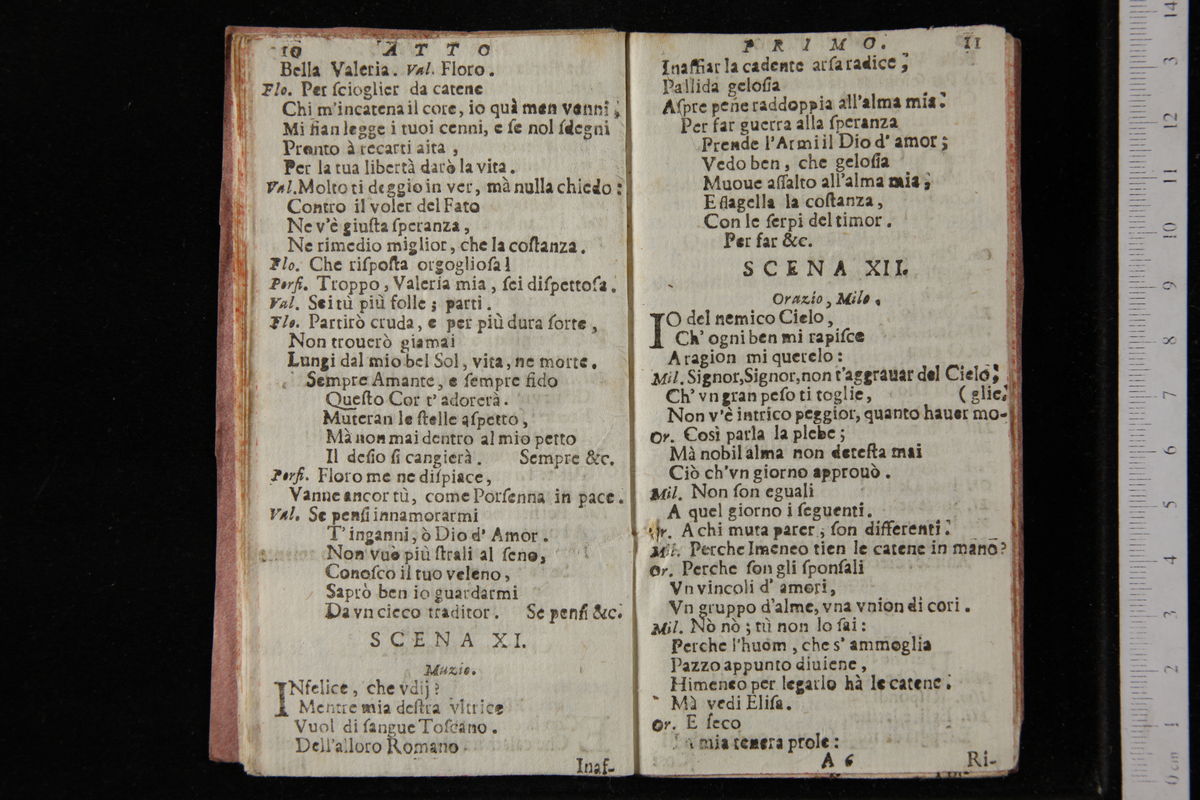 10 ATTO
Bella Valeria. Val. Floro.
Flo. Per ſcioglier da catene
Chi m'incatena il core, io quà men venni;
Mi ſian legge i tuoi cenni, e ſe nol ſdegni
Pronto à recarti aita,
Per la tua libertà darò la vita.
Val. Molto ti deggio in ver, mà nulla chiedo:
Contro il voler del Fato
Ne v'è giuſta ſperanza,
Ne rimedio miglior, che la coſtanza.
Flo. Che riſpoſta orgoglioſa!
Porſi. Troppo, Valeria mia, ſei diſpettoſa.
Val. Sei tù più folle; parti.
Flo. Partirò cruda, e per più dura ſorte,
Non trouerò giamai
Lungi dal mio bel Sol, vita, ne morte.
Sempre Amante, e ſempre fido
Queſto Cor t'adorerà.
Muteran le ſtelle aſpetto,
Mà non mai dentro al mio petto
Il deſio ſi cangierà. Sempre &c.
Porſi. Floro me ne diſpiace,
Vanne ancor tù, come Porſenna in pace.
Val. Se penſi innamorarmi
T'inganni, ò Dio d'Amor.
Non vuò più ſtrali al ſeno,
Conoſco il tuo veleno,
Saprò ben io guardarmi
Da vn cieco traditor. Se penſi &c.
SCENA XI.
Muzio.
INfelice, che vdij?
Mentre mia deſtra vltrice
Vuol di ſangue Toſcano.
Dell'alloro Romano
Inaf-
PRIMO. 11
Inaffiar la cadente arſa radice;
Pallida geloſia
Aſpre pene raddoppia all'alma mia.
Per far guerra alla ſperanza
Prende l'Armi il Dio d'amor;
Vedo ben, che geloſia
Muoue aſſalto all'alma mia;
E flagella la coſtanza,
Con le ſerpi del timor.
Per far &c.
SCENA XII.
Orazio, Milo.
IO del nemico Cielo,
Ch'ogni ben mi rapiſce
A ragion mi querelo:
Mil. Signor, Signor, non t'aggrauar del Cielo;
Ch'vn gran peſo ti toglie, (glie.
Non v'è intrico peggior, quanto hauer mo-
Or. Così parla la plebe;
Mà nobil alma non deteſta mai
Ciò ch'vn giorno approuò.
Mil. Non ſon eguali
A quel giorno i ſeguenti.
Or. A chi muta parer, ſon differenti.
Mil. Perche Imeneo tien le catene in mano?
Or. Perche ſon gli ſponſali
Vn vincoli d'amori,
Vn gruppo d'alme, vna vnion di cori.
Mil. Nò nò; tù non lo ſai:
Perche l'huom, che s'ammoglia
Pazzo appunto diuiene,
Himeneo per legarlo hà le catene.
Mà vedi Eliſa.
Or. E ſeco
La mia tenera prole:
A 6 Ri-